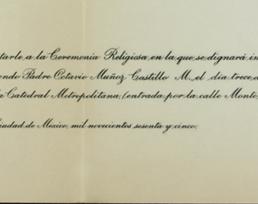 tarle a la Ceremonia Religiosa en la que se dignará in
ndo Padre Octavio Muñoz Castillo M. el día trece d
Catedral Metropolitana (entrada por la calle Monte
iudad de México, mil novecientos sesenta y cinco.